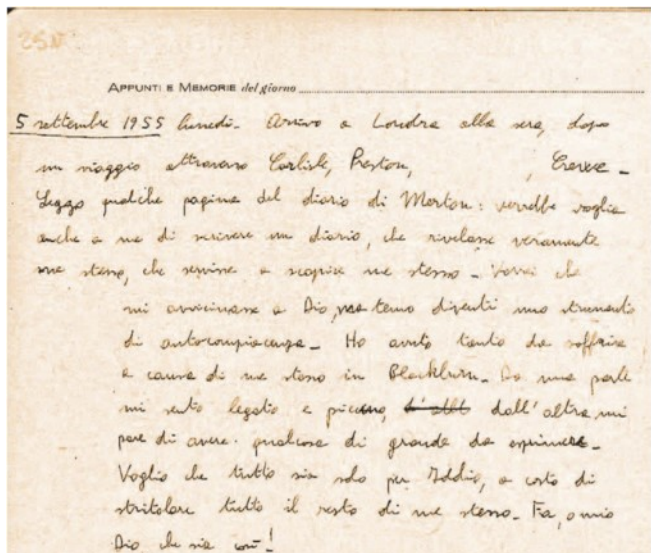 25N
APPUNTI E MEMORIE del giorno
5 settembre 1955 lunedì. Arrivo a Londra alla sera, dopo
un viaggio attraverso Carlisle, Preston, , Crewe -
Leggo qualche pagina del diario di Merton: verrebbe voglia
anche a me di scrivere un diario, che rivelasse veramente
me stesso, che servisse a scoprire me stesso - Vorrei che
mi avvicinasse a Dio, ma temo diventi uno strumento
di autocompiacenza - Ho avuto tanto da soffrire
a causa di me stesso in Blackburn - Da una parte
mi sento legato e piccino, dall'altra mi
pare di avere qualcosa di grande da esprimere -
Voglio che tutto sia solo per Iddio, a costo di
stritolare tutto il resto di me stesso - Fa, o mio
Dio che sia così!